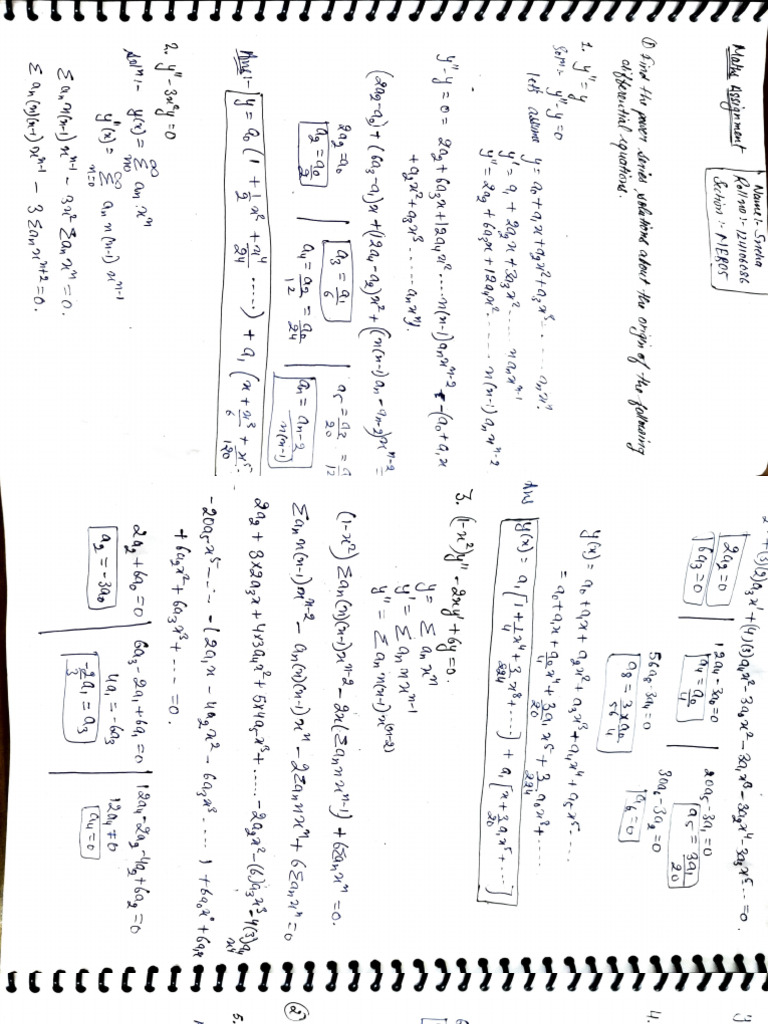 Maths Assignment
Name:- Sneha
Roll no:- 124106086
Section :- MER05
① Find the power series solutions about the origin of the following
differential equations.
1. y'' = y
Solⁿ:- y''-y=0
let's assume y = a₀ + a₁x + a₂x² + a₃x³ ...... aₙxⁿ
y' = a₁ + 2a₂x + 3a₃x² ..... n aₙxⁿ⁻¹
y'' = 2a₂ + 6a₃x + 12a₄x² ...... n(n-1) aₙxⁿ⁻²
y''-y = 0 = 2a₂ + 6a₃x + 12a₄x² .... n(n-1)aₙxⁿ⁻² - (a₀ + a₁x
+ a₂x² + a₃x³ ...... aₙxⁿ)
(2a₂-a₀) + (6a₃-a₁)x + (12a₄-a₂)x² + (n(n-1)aₙ - aₙ₋₂)xⁿ⁻² =
2a₂=a₀
a₂ = a₀/2
a₃ = a₁/6
a₄ = a₂/12 = a₀/24
a₅ = a₃/20 = a/12
aₙ = aₙ₋₂/n(n-1)
Ans:- y = a₀ (1 + 1/2 x² + x⁴/24 .....) + a₁ (x + x³/6 + x⁵/120
2. y''-3x²y=0
Solⁿ:- y(x) = ∞Σn=0 aₙ xⁿ
y''(x) = ∞Σn=0 aₙ n(n-1) xⁿ⁻¹
Σ aₙ n(n-1) xⁿ⁻¹ - 3x² Σ aₙxⁿ = 0.
Σ aₙ(n)(n-1) xⁿ⁻¹ - 3 Σ aₙ xⁿ⁺² = 0.
+(3)(2)a₃x' + (4)(3)a₄x² - 3a₀x² - 3a₁x³ - 3a₂x⁴ - 3a₃x⁵ ... = 0.
2a₂=0
6a₃=0
12a₄-3a₀=0
a₄ = a₀/4
20a₅-3a₁=0
a₅ = 3a₁/20
56a₈-3a₄=0
a₈ = 3×a₀/56 4
30a₆-3a₂=0
a₆=0
y(x) = a₀ + a₁x + a₂x² + a₃x³ + a₄x⁴ + a₅x⁵ ....
= a₀ + a₁x + a₀x⁴/4 + 3a₁x⁵/20 + 3/224 a₀x⁸ + ....
Ans y(x) = a₁ [1 + 1/4 x⁴ + 3/224 x⁸ + ....] + a₁ [x + 3/20 a₁x⁵ + ....]
3. (1-x²)y'' - 2xy' + 6y = 0.
y = Σ aₙxⁿ
y' = Σ aₙ n xⁿ⁻¹
y'' = Σ aₙ n(n-1)x⁽ⁿ⁻²⁾
(1-x²) Σ aₙ(n)(n-1)xⁿ⁻² - 2x(Σ aₙ n xⁿ⁻¹) + 6Σaₙxⁿ = 0.
Σ aₙ n(n-1)xⁿ⁻² - aₙ(n)(n-1)xⁿ - 2Σaₙ n xⁿ + 6Σaₙxⁿ = 0
2a₂ + 3×2a₃x + 4×3a₄x² + 5×4a₅x³ + ...... - 2a₂x² - (6)a₃x³ - 4(3)a₄x⁴
- 20a₅x⁵ ...... - (2a₁x - 4a₂x² - 6a₃x³ ....) + 6a₀x⁰ + 6a₁x
+ 6a₂x² + 6a₃x³ + ... = 0.
2a₂+6a₀ = 0
a₂ = -3a₀
6a₃ - 2a₁ + 6a₁ = 0
4a₁ = -6a₃
-2/3 a₁ = a₃
12a₄ - 2a₂ - 4a₂ + 6a₂ = 0
12a₄ = 0
a₄ = 0
②
5.
4.